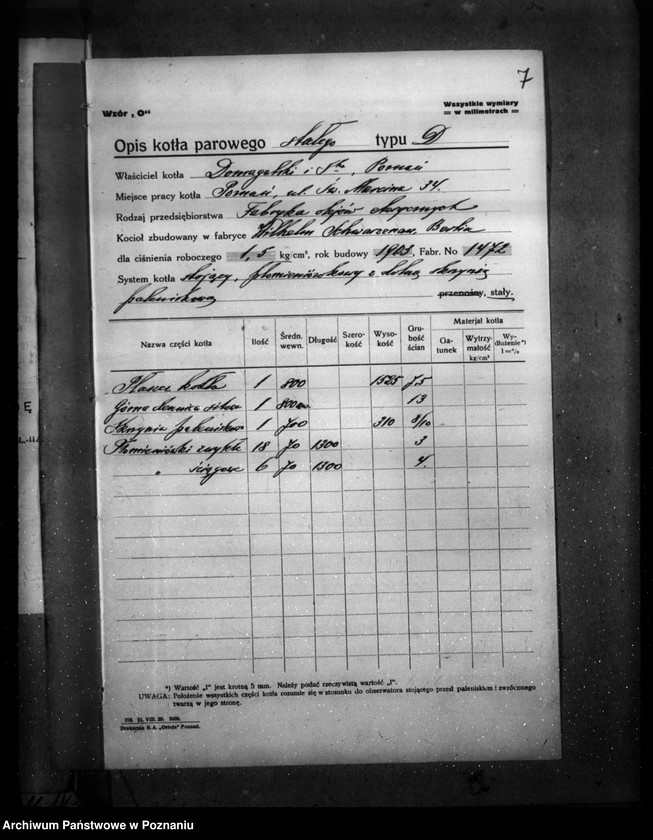 7
Wzór „O"
Wszystkie wymiary
w milimetrach
Opis kotła parowego stałego typu D
Właściciel kotła Domagalski i Ska, Poznań
Miejsce pracy kotła Poznań, ul. Św. Marcina 34.
Rodzaj przedsiębiorstwa Fabryka olejów eterycznych
Kocioł zbudowany w fabryce Wilhelm Schwarzenau, Berlin
dla ciśnienia roboczego 1,5 kg/cm², rok budowy 1903, Fabr. No 1472
System kotła stojący, płomieniówkowy z dolną skrzynią
paleniskową przenośny, stały.
Nazwa części kotła Ilość Średn. wewn. Długość Szerokość Wysokość Grubość ścian Materjał kotła
Gatunek Wytrzymałość kg/cm² Wydłużenie*) l=º/o
Płaszcz kotła 1 800 1525 7.5
Górna dennica sitowa 1 800 13
Skrzynia paleniskowa 1 700 310 8/10
Płomieniówki zwykłe 18 70 1300 3
" ściągowe 6 70 1300 4.
*) Wartość „l" jest krotną 5 mm. Należy podać rzeczywistą wartość „l".
UWAGA: Położenie wszystkich części kotła rozumie się w stosunku do obserwatora stojącego przed paleniskiem i zwróconego
twarzą w jego stronę.
Drukarnia S. A. „Ostoja" Poznań.
Archiwum Państwowe w Poznaniu